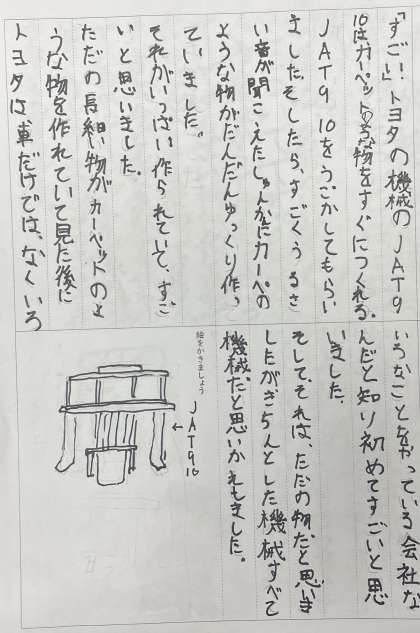 「すごい！トヨタの機械のJAT9
10はカーペットのような物をすぐにつくれる。」
JAT9 10をうごかしてもらい
ました。そしたら、すごくうるさ
い音が聞こえたしゅんかんにカーペの
ような物がだんだんゆっくり作っ
ていました。
それがいっぱい作られていて、すご
いと思いました。
ただの長細い物がカーペットのよ
うな物を作れていて見た後に
トヨタは車だけでは、なくいろ
いろなことをやっている会社な
んだと知り初めてすごいと思
いました。
そして、それは、ただの物だと思いま
したがきちんとした機械すべて
機械だと思いかえもました。
絵をかきましょう
JAT910